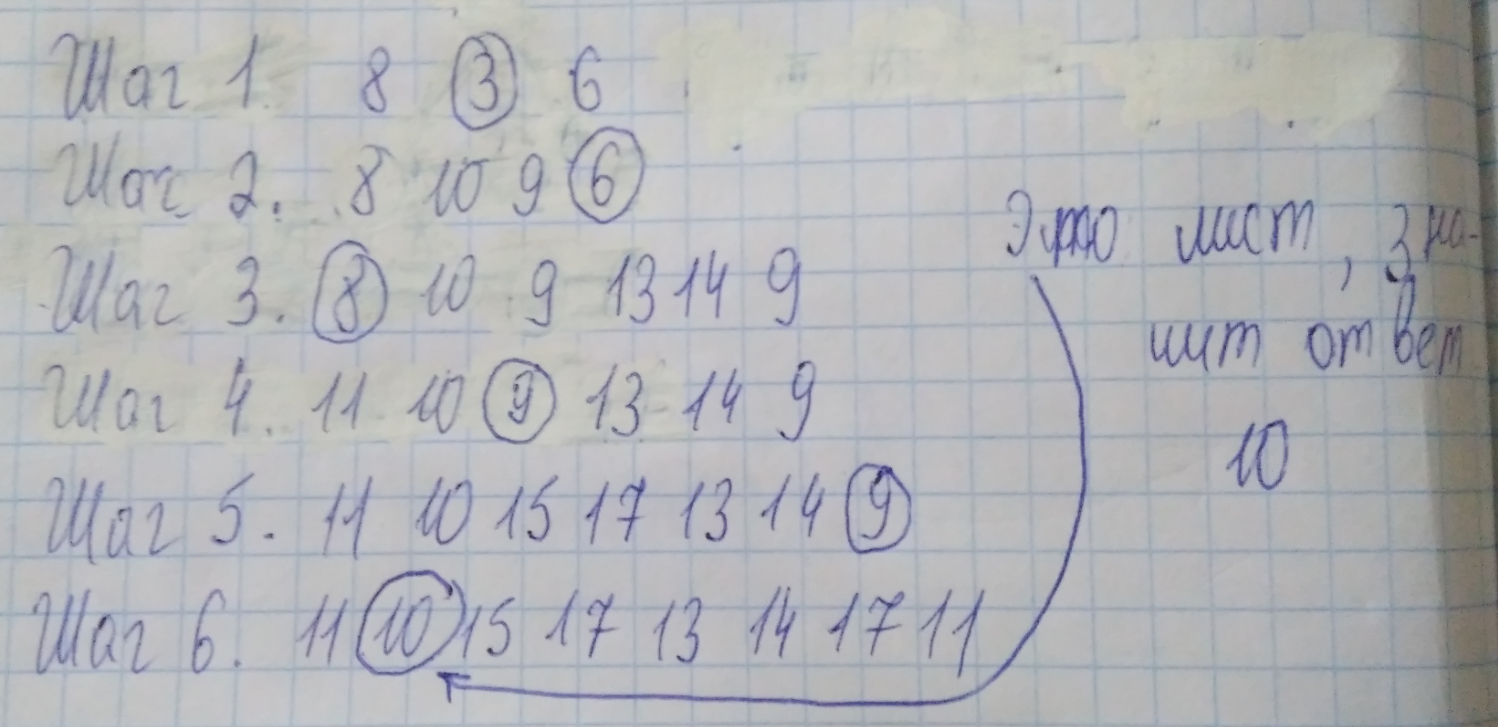 Шаг 1. 8 3 6
Шаг 2. 8 10 9 6
Шаг 3. 8 10 9 13 14 9
Шаг 4. 11 10 9 13 14 9
Шаг 5. 11 10 15 17 13 14 9
Шаг 6. 11 10 15 17 13 14 17 11
Это лист, зна-
чит ответ
10